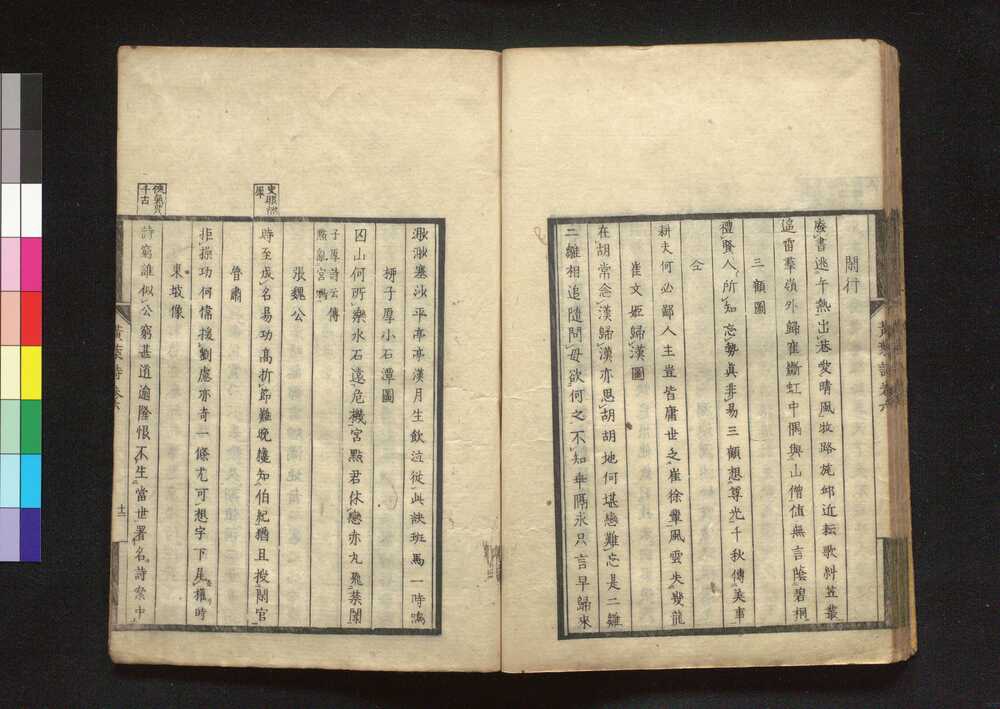 閒行
廢書逃午熱出巷愛晴風牧路施邱近耘歌斜笠叢
遙雷羣嶺外歸寉斷虹中偶與山僧値無言蔭碧桐
三顧圖
禮賢人所知忘勢眞非易三顧想尊光千秋傳美事
仝
耕夫何必鄙人主豈皆庸世乏崔徐輩風雲失幾龍
崔文姫歸漢圖
在胡常念漢歸漢亦思胡胡地何堪戀難忘是二雛
二雛相追隨問母欲何之不知乖隔永只言早歸來
黃葉詩 卷六
渺渺塞沙平亭亭漢月生飮泣從此訣班馬一時鳴
栁子厚小石潭圖
囚山何所樂水石遠危機宮點君休戀亦九飛禁闈
子厚詩云
傳
點亂宮鴉
張魏公
時至成名易功高折節難晚擡知伯紀猶且投閒官
魯肅
拒操功何偉援劉慮亦奇一條尤可想字下是權時
東坡像
詩窮誰似公窮甚道逾隆恨不生當世署名詩案中
史眼炯
千古
黃葉詩 卷六
十二